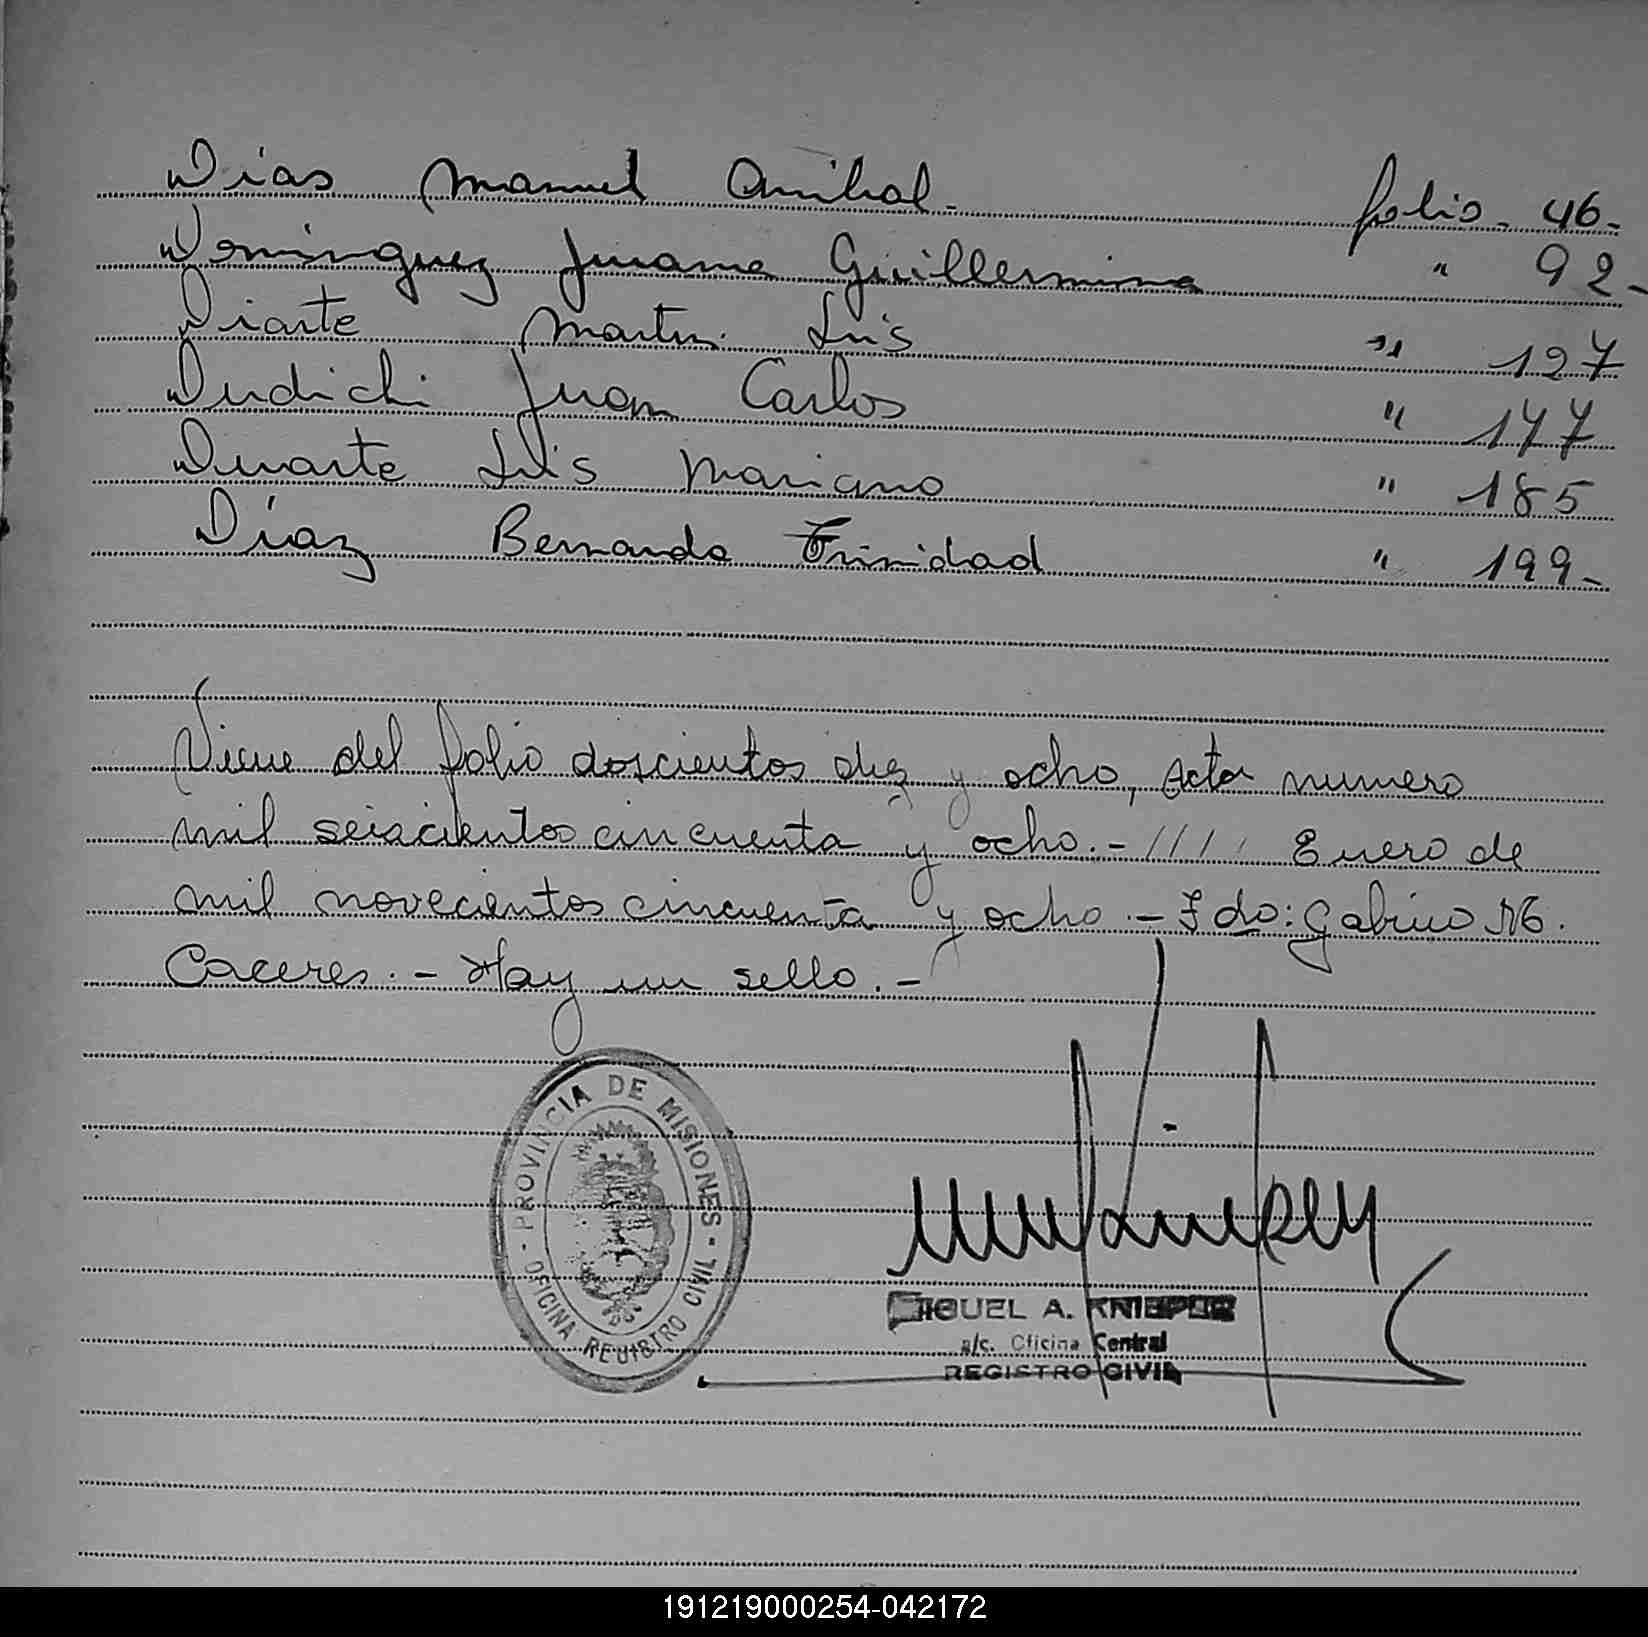 Dias Manuel Anibal.- folio - 46.-
Dominguez Juana Guillermina " 92-
Diarte Martin Luis " 127
Dudichi Juan Carlos " 177
Duarte Luis Mariano " 185
Díaz Bernarda Trinidad " 199-
Viene del folio doscientos diez y ocho, acta numero
mil seiscientos cincuenta y ocho.-///// Enero de
mil novecientos cincuenta y ocho.- Fdo: Gabino M.
Caceres.- Hay un sello.-
PROVINCIA DE MISIONES
OFICINA REGISTRO CIVIL
MIGUEL A. KNIEPER
a/c. Oficina Central
REGISTRO CIVIL
191219000254-042172